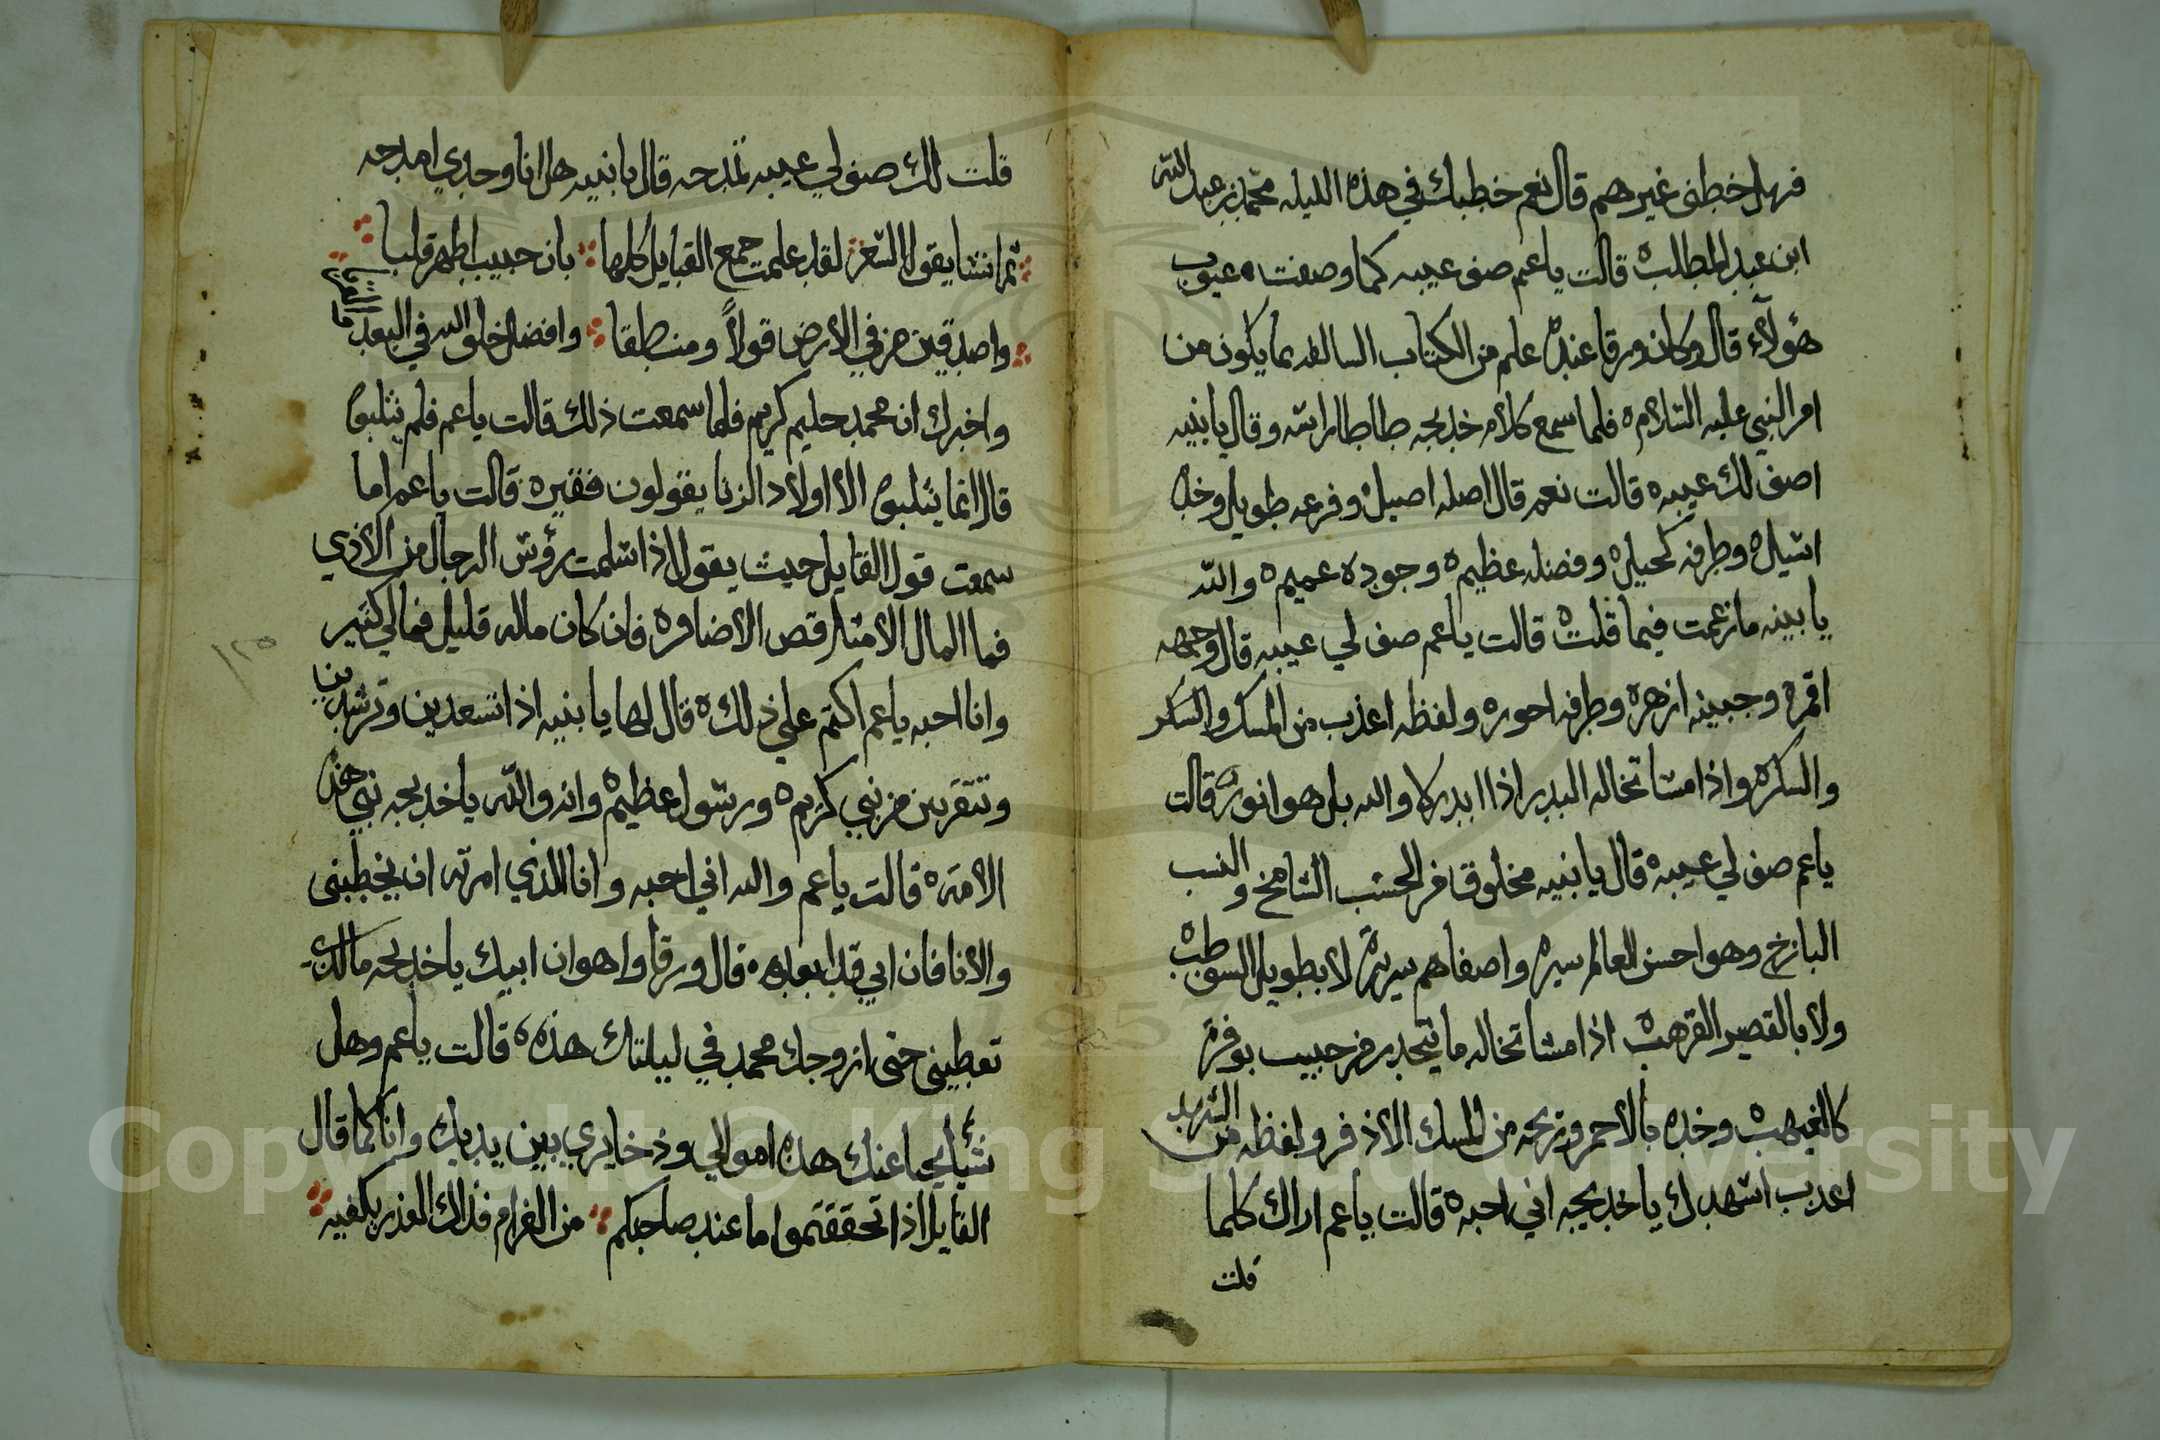 فهل خطبني غيرهم قال نعم خطبك في هذه الليله محمد بن عبد الله
ابن عبد المطلب قالت ياعم صف عيبه كما وصفت عيوب
هؤلآء قال وكان ورقا عنده علم من الكتاب السالفه بما يكون من
امر النبي عليه السلام فلما سمع كلام خديجه طاطا راسه وقال يابنيه
اصف لك عيبه قالت نعم قال اصله اصيل وفرعه طويل وخده
اسيل وطرفه كحيل وفضله عظيم وجوده عميم والله
يا بنيه مازعمت فيما قلت قالت ياعم صف لي عيبه قال وجهه
اقمر وجبينه ازهر وطرفه احور ولفظه اعذب من المسك والسكر
والسكر واذا مشا تخاله البدر اذا ابدر كلا والله بل هو انور قالت
ياعم صف لي عيبه قال يا بنيه مخلوقا من الحسب الشامخ والنسب
البازخ وهو احسن العالم سيره واصفاهم سريرة لا بطويل السوطب
ولا بالقصير القرهب اذا مشا تخاله ما ينحدر من حبيب بوفرة
كالغيهب وخده بالاحمر وريحه من المسك الاذفر ولفظه من الشهد
اعذب اشهدك ياخديجه اني احبه قالت ياعم اراك كلما
قلت
قلت لك صف لي عيبه تمدحه قال يا بنيه هل انا وحدي امدحه
ثم انشا يقول الشعر لقد علمت جمع القبايل كلها بان حبيب اطهر قلبا
واصدق من في الارض قولاً ومنطقا وافضل خلق الله في البعد ما
واخبرك ان محمد حليم كريم فلما سمعت ذلك قالت ياعم فلم يثلبوه
قال انما يثلبوه الا اولاد الزنا يقولون فقير قالت ياعم اما
سمعت قول القايل حيث يقول اذا سلمت رؤس الرجال من الاذي
فما المال الا مثل قص الاضافره فان كان ماله قليل فمالي كثير
وانا احبه ياعم اكتم علي ذلك قال لها يا بنيه اذا تسعدين وترشدين
وتتقربين من نبي كريم ورسول عظيم وانه والله ياخديجه نبي هذه
الامة قالت ياعم والله اني احبه وانا الذي امرته ان يخطبني
والا انا فان ابي قد ابعده قال ورقا واهوان ابيك ياخديجه مالذي
تعطيني حتى ازوجك محمد في ليلتك هذه قالت ياعم وهل
شيأ يخبا عنك هذه اموالي وذخايري بين يديك وانا كما قال
القايل اذا تحققتموا ما عند صاحبكم من الغرام فذاك العذر يكفيه
١٢٥
Copyright © King Saud University
1957